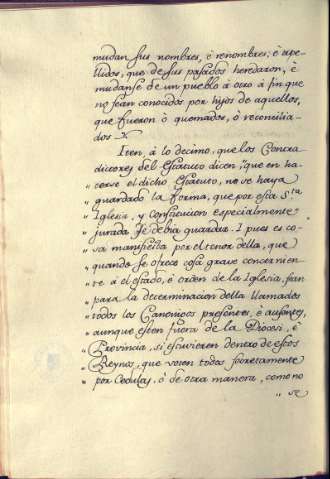 mudan sus nombres, è renombres; è ape-
llidos, que de sus pasados heredaron, è
mudanse de un pueblo à otro à fin que
no sean conocidos por hijos de aquellos,
que fueron ò quemados, ò reconcilia-
dos.
Iten, à lo decimo, que los Contra-
dictores del Estatuto dicen, "que en ha-
" cerse el dicho Estatuto, no se haya
" guardado la forma, que por esta S.ta
" Iglesia, y Constitucion especialmente
" jurada se debia guardar. I pues es co-
" sa manifiesta por el tenor della, que
" quando se ofrece cosa grave concernien-
" te à el estado, è orden de la Iglesia, sean
" para la determinacion della llamados
" todos los Canonicos presentes, è ausentes,
" aunque esten fuera de la Diocesi, è
" Provincia, si estuvieren dentro de estos
" Reynos, que voten todos secretamente
" por Cedulas, ò de otra manera, como no
" se